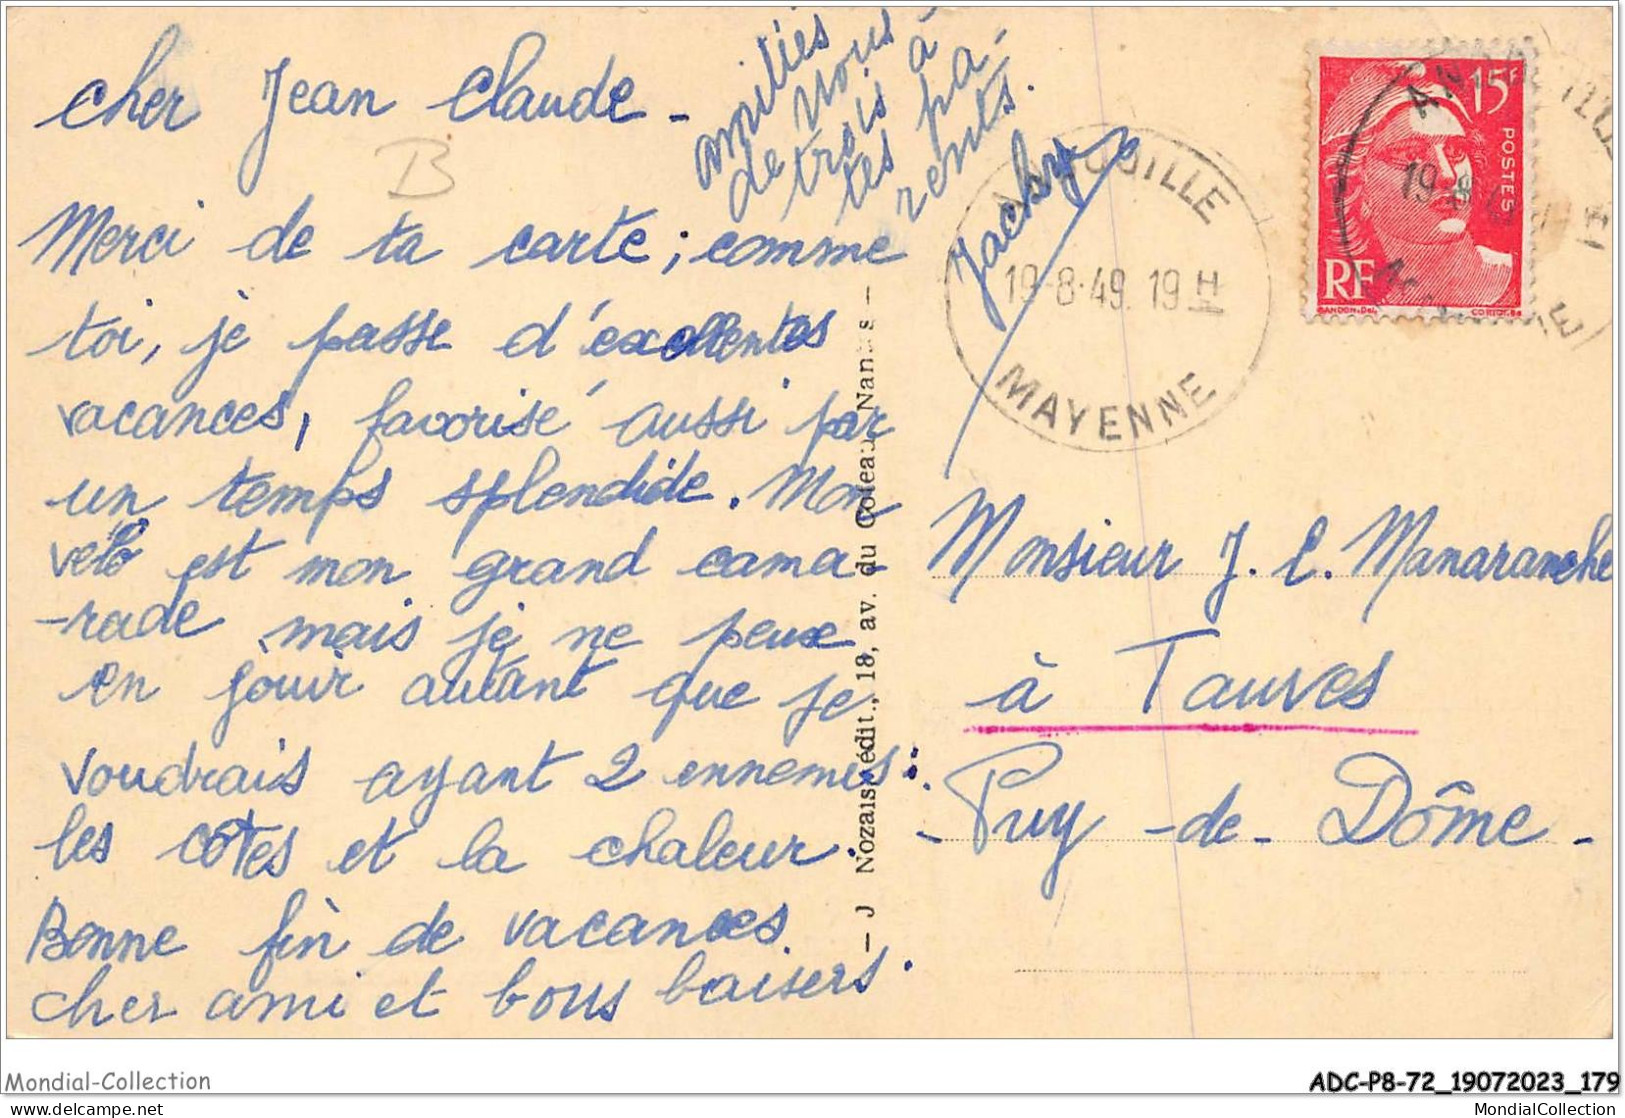 Cher Jean Claude -
amitiés
de nous
trois à
tes pa-
rents.
Jacky
B
Merci de ta carte ; comme
toi, je passe d'excellentes
vacances, favorisé aussi par
un temps splendide. Mon
vélo est mon grand cama-
-rade mais je ne peux
en jouir autant que je
voudrais ayant 2 ennemis :
les côtes et la chaleur.
Bonne fin de vacances
cher ami et bons baisers.
- J Nozais, édit., 18, av. du Coteau, Nantes -
AMBOILLE
19-8-49. 19H
MAYENNE
15F
POSTES
RF
GANDON. Del.
CORTOT. Sc
19-8
Monsieur J. C. Manaranche
à Tauves
- Puy - de - Dôme -
Mondial-Collection
ADC-P8-72_19072023_179
delcampe.net
MondialCollection